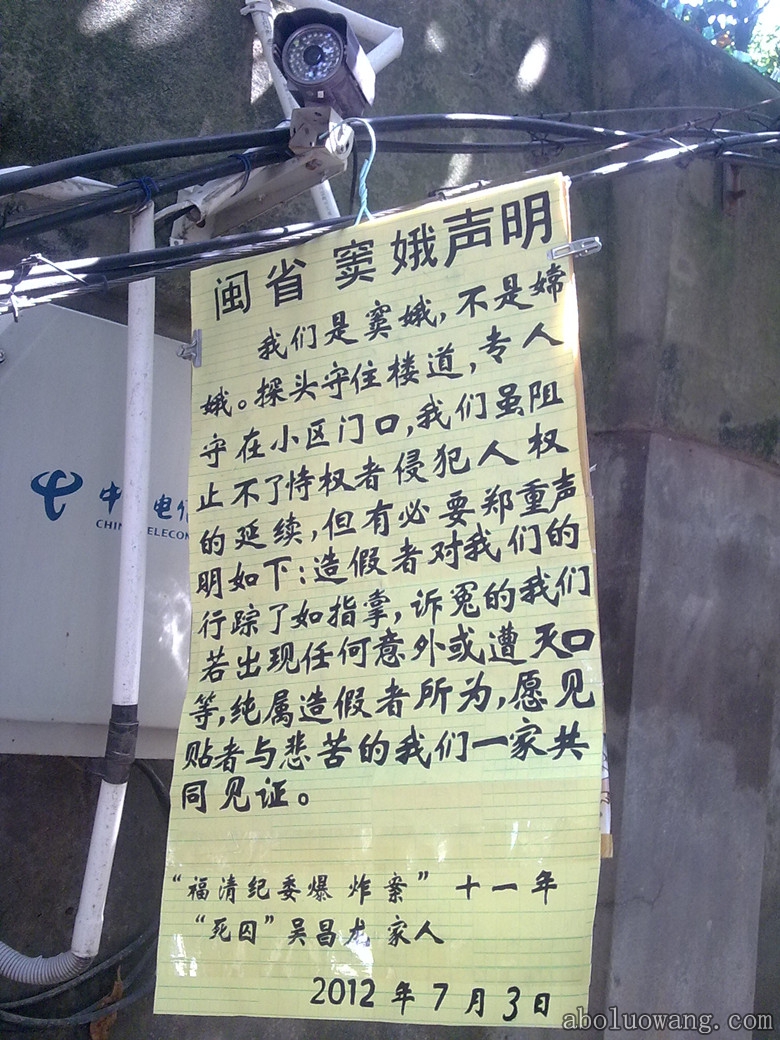 闽省窦娥声明
我们是窦娥,不是嫦
娥。探头守住楼道,专人
守在小区门口,我们虽阻
止不了恃权者侵犯人权
的延续,但有必要郑重声
明如下:造假者对我们的
行踪了如指掌,诉冤的我们
若出现任何意外或遭灭口
等,纯属造假者所为,愿见
贴者与悲苦的我们一家共
同见证。
“福清纪委爆炸案”十一年
“死囚”吴昌龙家人
2012年7月3日
中 电信
CHIN ELECOM
aboluowang.com